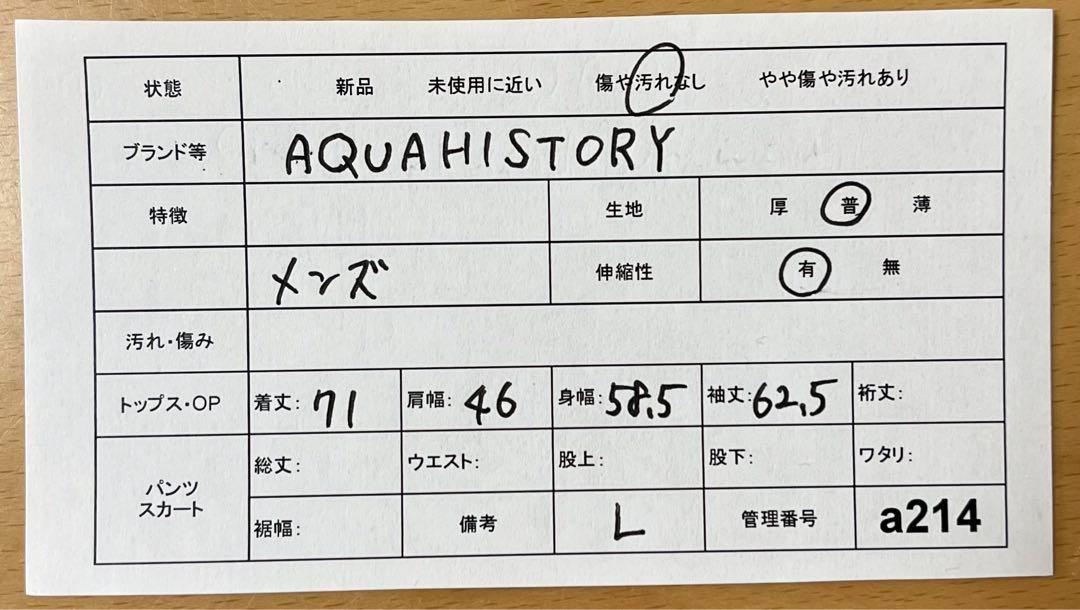 状態 新品 未使用に近い 傷や汚れなし やや傷や汚れあり
ブランド等 AQUAHISTORY
特徴 生地 厚 普 薄
メンズ 伸縮性 有 無
汚れ・傷み
トップス・OP 着丈: 71 肩幅: 46 身幅: 58.5 袖丈: 62.5 裄丈:
パンツ スカート 総丈: ウエスト: 股上: 股下: ワタリ:
裾幅: 備考 L 管理番号 a214